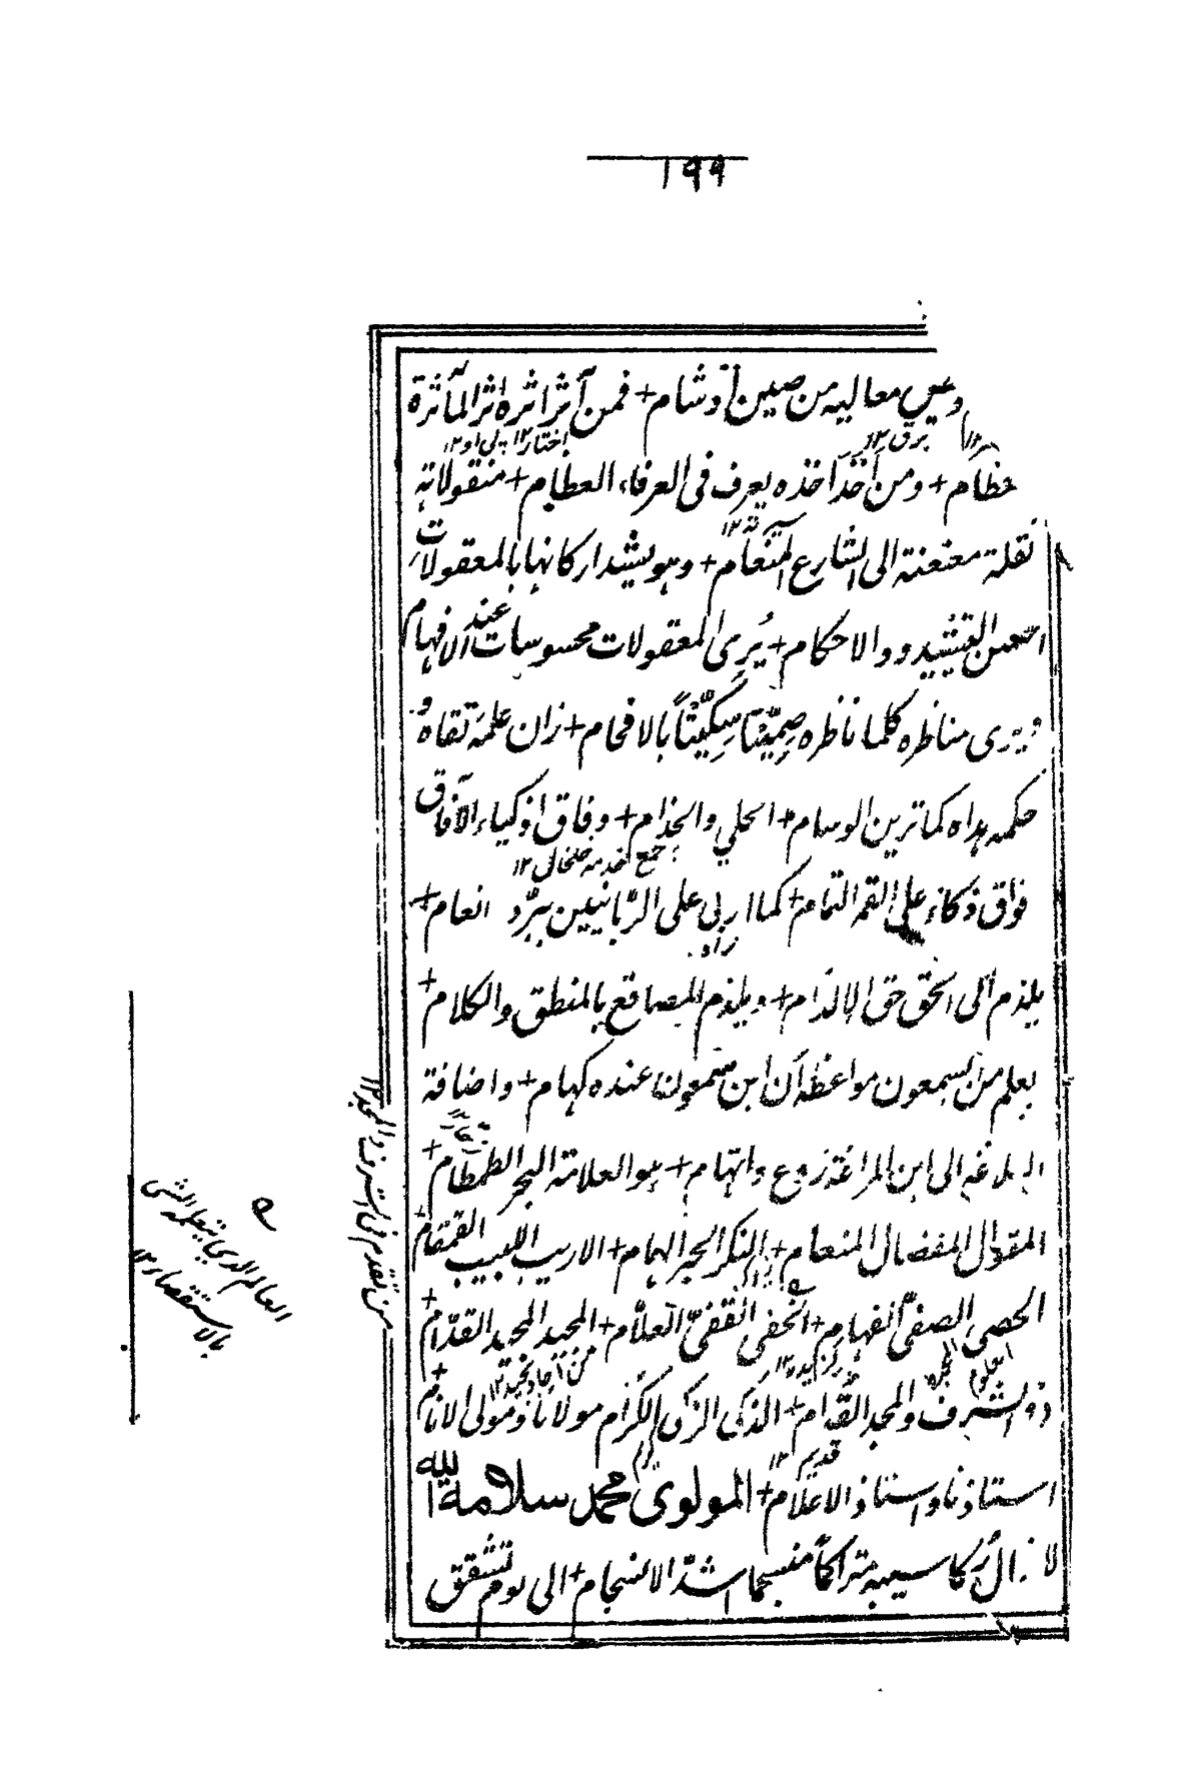 ١٩٩
معاليه من صين أو شام + فمن آثر اثره اثر المآثرة
برق ١٢ اختار ١٢
عظام + ومن أخذ اخذه يعرف فى العرفاء العظام + منقولاته
نقلة معنعنة الى الشارع المنعام + وهو يشيد اركانها بالمعقولات
احسن التشييد والاحكام + يُرِى المعقولات محسوسات عند الافهام
ويرى مناظره كلما ناظره صِمِّيْتًا سِكِّيْتًا بالافحام + زان علمَه تقاهُ و
حكمه هداه كما تزين الوسام + الحلي والخذام + وفاق اذكياء الآفاق
جمع خدمه خلخال ١٢
فواق ذكاء على القمر التمام + كما اربى على الربانيين ببرّ و انعام +
زاد
يلزم الى الحق حق الالزام + ويلزم المصاقع بالمنطق والكلام +
يعلم من يسمعون مواعظه أن ابن سمعون عنده كهام + واضافة
البلاغة الى ابن المراغة زوع واتهام + هو العلامة البحر الطمطام +
المقوال المفضال المنعام + الحبر الهمام + الاريب اللبيب القمقام +
الحصي الصفى الفهام + الحفى القفىّ العلّام + المجيد المجيد القدّام +
ذو الشرف والمجد القدام + الذكى الزكى الكرام مولانا ومولى الانام +
قديم ١٢
استاذنا واستاذ الاعلام + المولوى محمد سلامة الله
لا زال ركام سيبه متراكما منسجما اشدّ الانسجام + الى يوم تشقق
من تقدم فى الشرف والمجد ١٢
العالم الذي يتعلم الشئ
بالاستقصاء ١٢